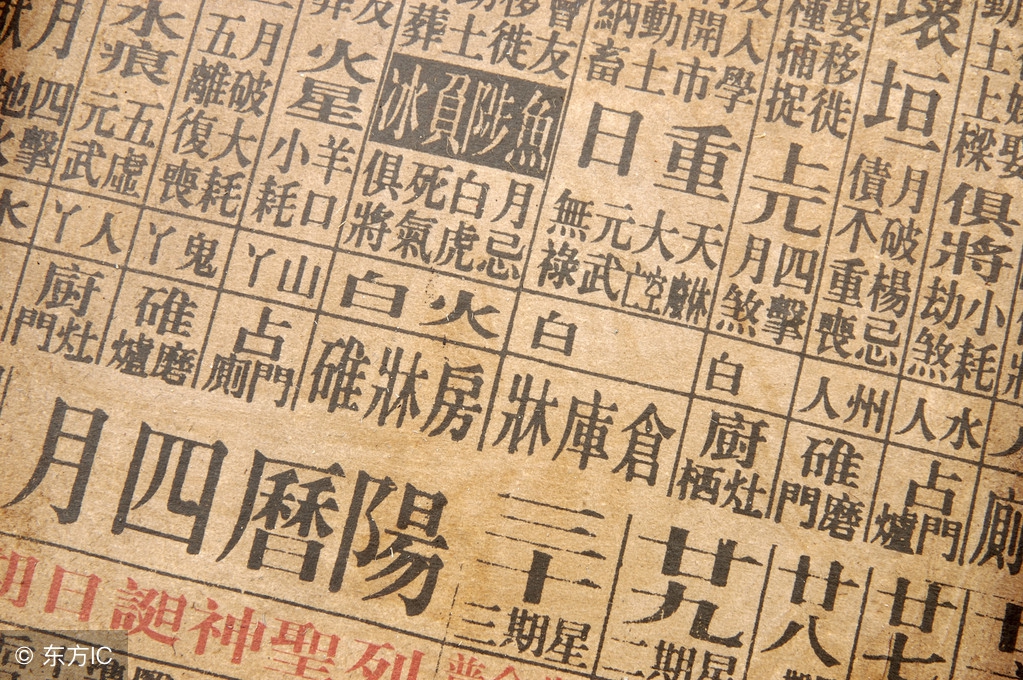 土上樑
俱將
小耗
劫煞
水人
占門爐
廿七
壞垣
月破楊忌
債不重喪
州人
碓磨門
廿八
娶移徙
種捕捉
上元
四擊
月煞
白
廚灶栖
廿九
星期二
人學
開市
動土
納畜
重日
天
大空亡
元武
無祿
白
倉庫牀
三十
星期三
會友
移徙
土
葬
魚陟負冰
月忌
白虎
死氣
俱將
火白
房牀碓
火星
羊口
小耗
山丫
占門廁
月破大耗
五離復喪
鬼丫
碓磨爐
水痕
五虛
元武
人丫
廚灶門
月
四擊
地火
水
陽曆四月
列聖神誕日期
© 东方IC